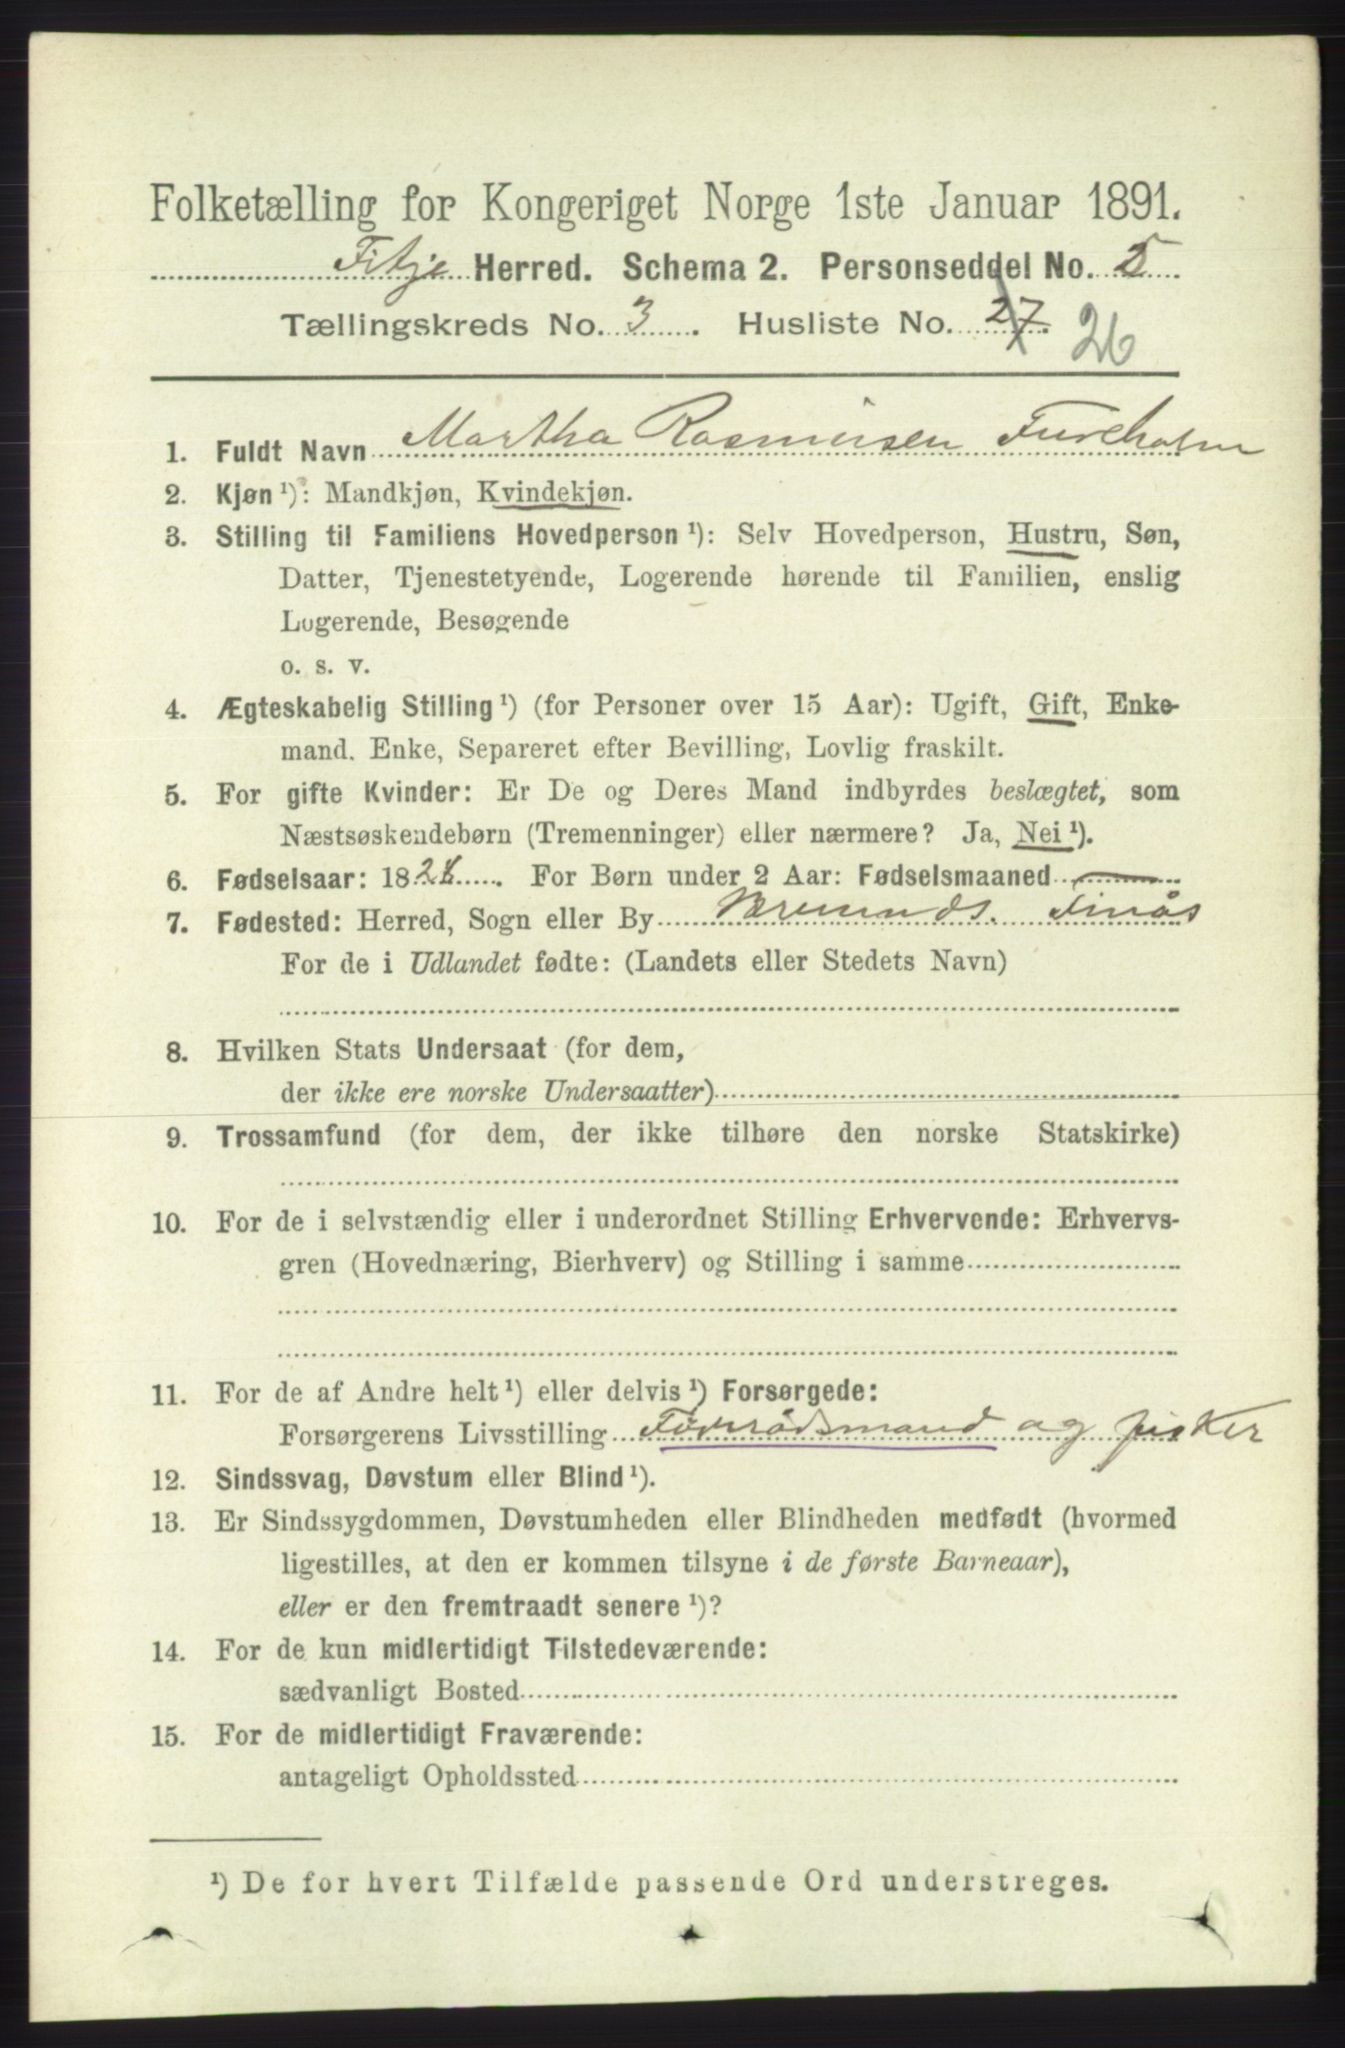 Folketælling for Kongeriget Norge 1ste Januar 1891.
Fitje Herred. Schema 2. Personseddel No. 5
Tællingskreds No. 3. Husliste No. 27. 26
1. Fuldt Navn Martha Rasmussen Fureholm
2. Kjøn ¹): Mandkjøn, Kvindekjøn.
3. Stilling til Familiens Hovedperson ¹): Selv Hovedperson, Hustru, Søn,
Datter, Tjenestetyende, Logerende hørende til Familien, enslig
Logerende, Besøgende
o. s. v.
4. Ægteskabelig Stilling ¹) (for Personer over 15 Aar): Ugift, Gift, Enke-
mand. Enke, Separeret efter Bevilling, Lovlig fraskilt.
5. For gifte Kvinder: Er De og Deres Mand indbyrdes beslægtet, som
Næstsøskendebørn (Tremenninger) eller nærmere? Ja, Nei ¹).
6. Fødselsaar: 18 . For Børn under 2 Aar: Fødselsmaaned
7. Fødested: Herred, Sogn eller By Bremnds. Finås
For de i Udlandet fødte: (Landets eller Stedets Navn)
8. Hvilken Stats Undersaat (for dem,
der ikke ere norske Undersaatter)
9. Trossamfund (for dem, der ikke tilhøre den norske Statskirke)
10. For de i selvstændig eller i underordnet Stilling Erhvervende: Erhvervs-
gren (Hovednæring, Bierhverv) og Stilling i samme
11. For de af Andre helt ¹) eller delvis ¹) Forsørgede:
Forsørgerens Livsstilling Føderådsmand og fisker
12. Sindssvag, Døvstum eller Blind ¹).
13. Er Sindssygdommen, Døvstumheden eller Blindheden medfødt (hvormed
ligestilles, at den er kommen tilsyne i de første Barneaar),
eller er den fremtraadt senere ¹)?
14. For de kun midlertidigt Tilstedeværende:
sædvanligt Bosted
15. For de midlertidigt Fraværende:
antageligt Opholdssted
¹) De for hvert Tilfælde passende Ord understreges.